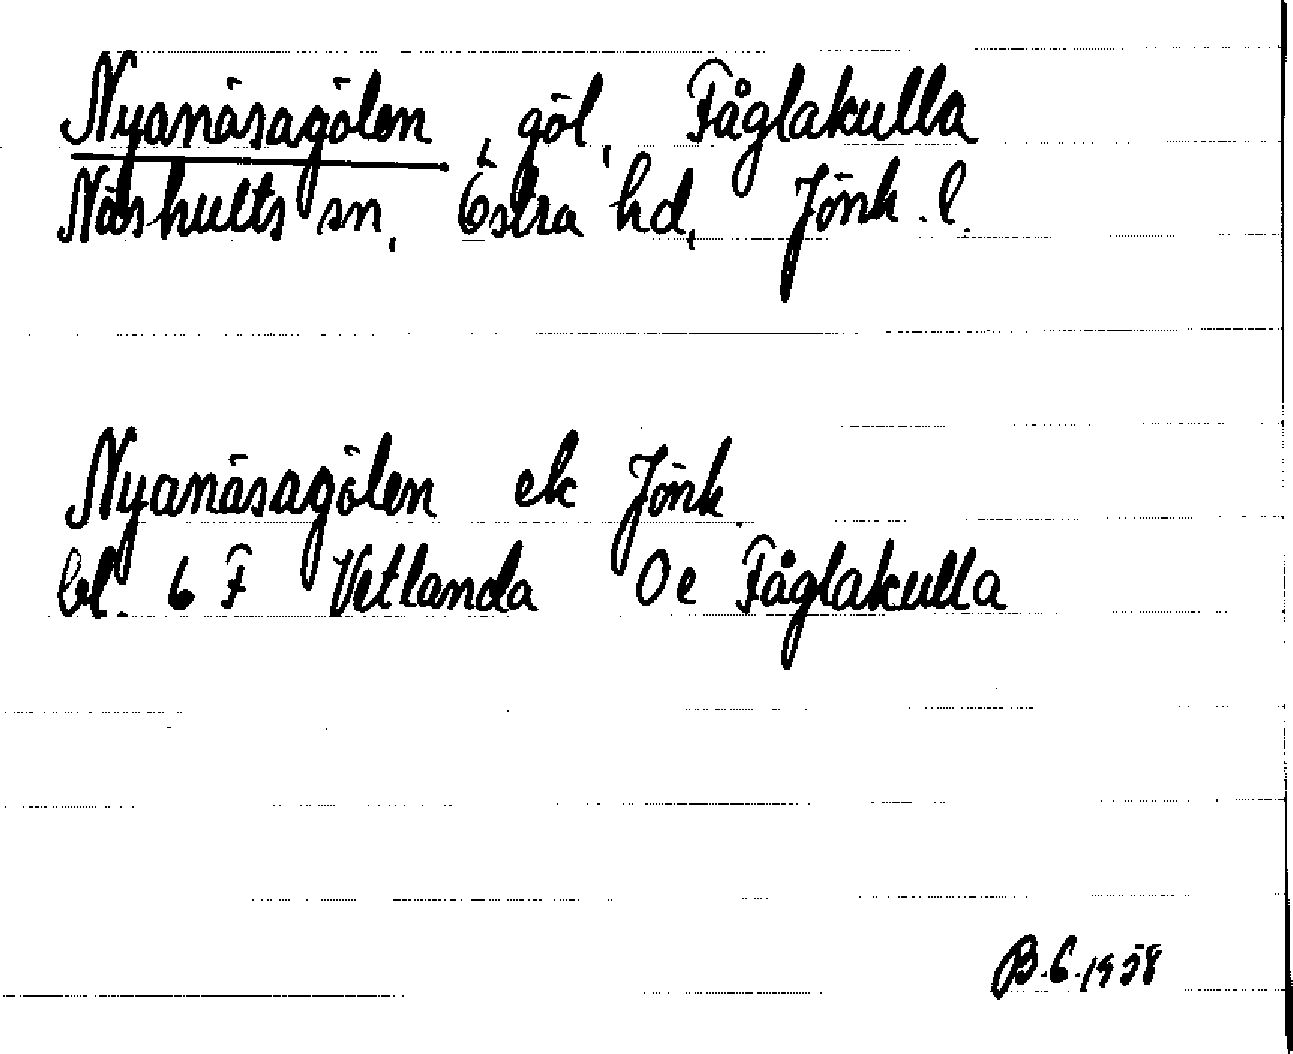 Nyanäsagölen, göl, Fåglakulla
Näshults sn, Östra hd, Jönk. l.
Nyanäsagölen ek Jönk.
bl. 6 F Vetlanda Oe Fåglakulla
B.G. 1958